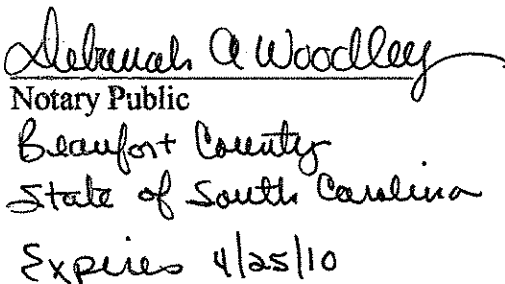 Deborah A Woodley
Notary Public
Beaufort County
State of South Carolina
Expires 4/25/10